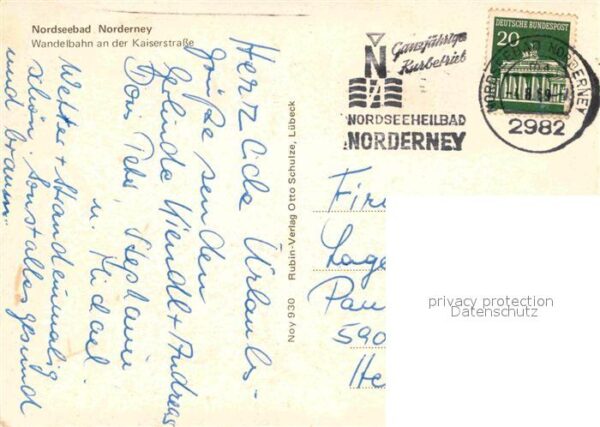 Nordseebad Norderney
Wandelbahn an der Kaiserstraße
Herzliche Urlaubs-
grüße senden
Gerlinde Wendt + Andreas
Doris, Peter, Stephanie
u. Michael
Wetter + Strand einmalig
schön. Sonst alles gesund
und braun.
Noy 930 Rubin-Verlag Otto Schulze, Lübeck
Ganzjährige
Kurbetrieb
N
NORDSEEHEILBAD
NORDERNEY
DEUTSCHE BUNDESPOST
20
NORDERNEY
2982
Fir
Lage
Pau
590
He
privacy protection
Datenschutz